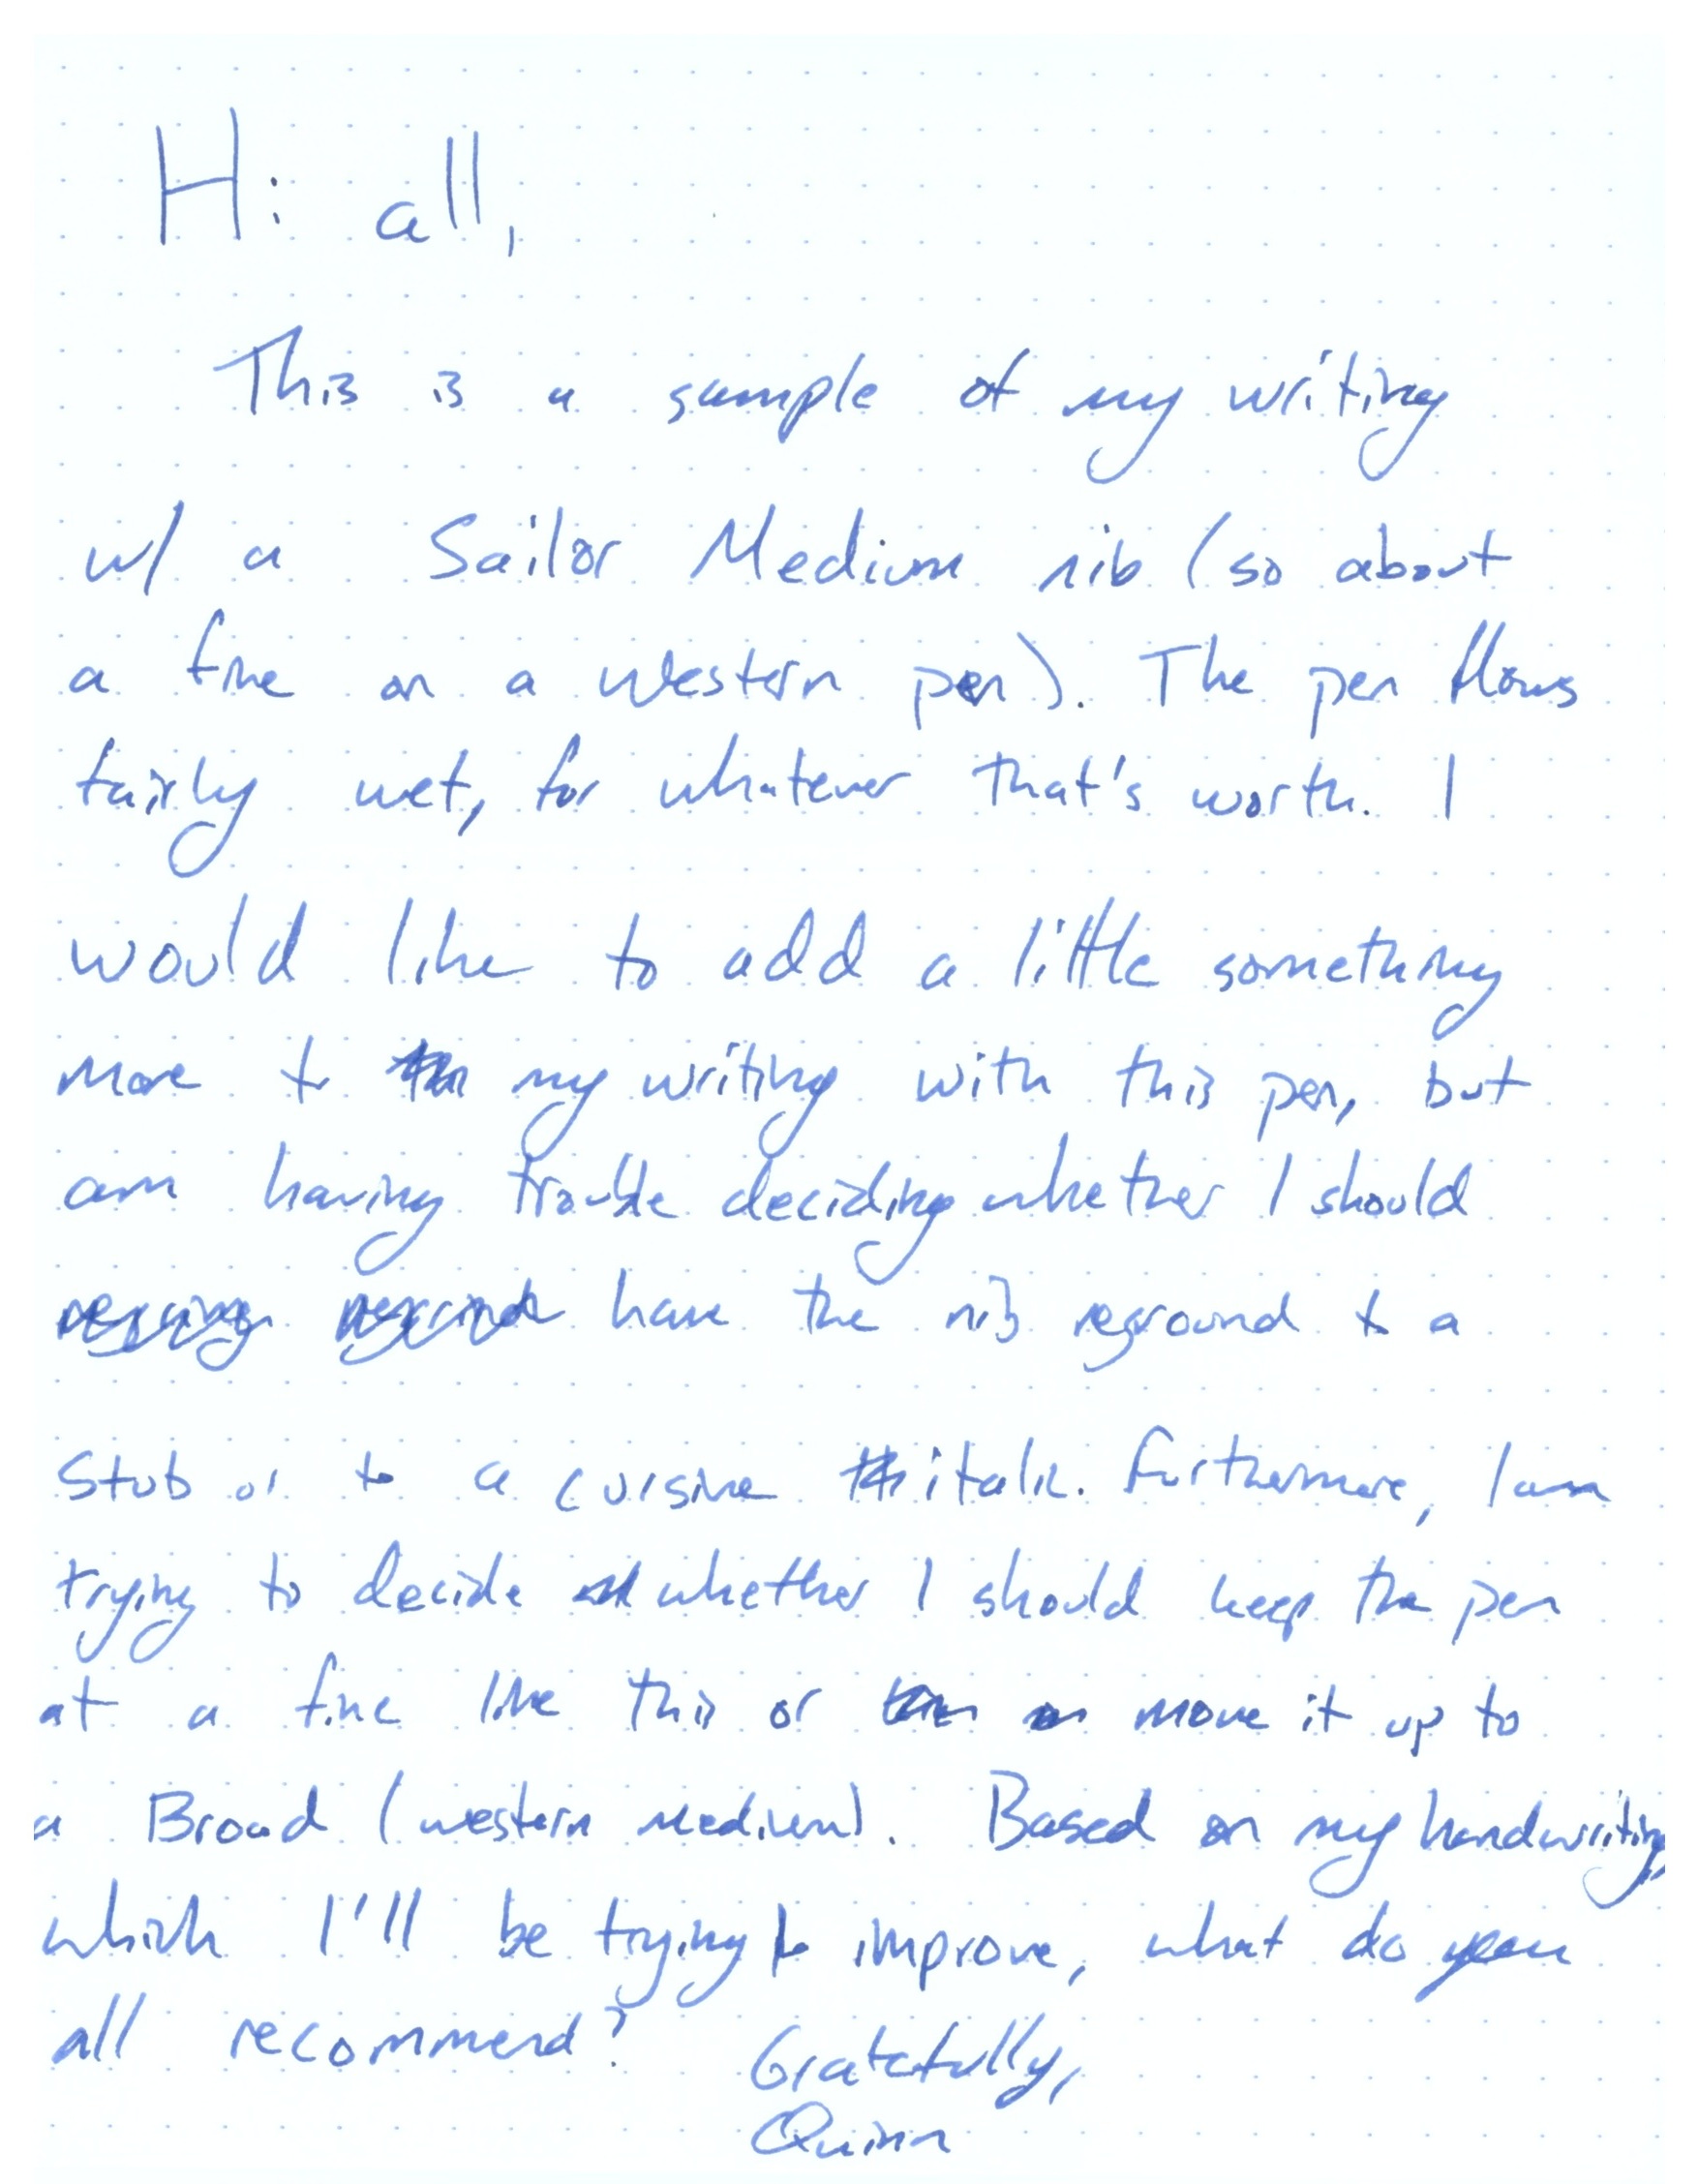 Hi all,
This is a sample of my writing
w/ a Sailor Medium nib (so about
a fine on a Western pen). The pen flows
fairly wet, for whatever that's worth. I
would like to add a little something
more to my writing with this pen, but
am having trouble deciding whether I should
have the nib reground to a
stub or to a cursive italic. Furthermore, I am
trying to decide whether I should keep the pen
at a fine like this or move it up to
a Broad (western medium). Based on my handwriting,
which I'll be trying to improve, what do you
all recommend?
Gratefully,
Quinn